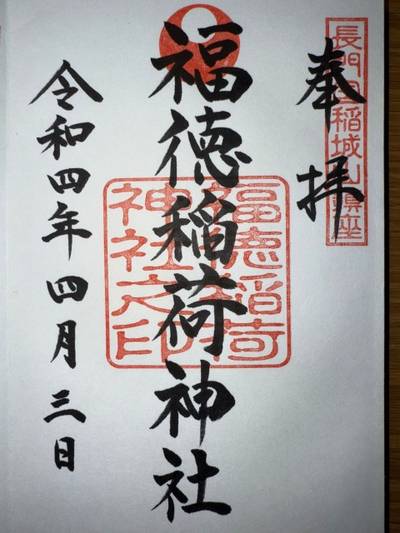 奉拝
長門国稲城山鎮座
福徳稲荷神社
福徳稲荷
神社之印
令和四年四月三日